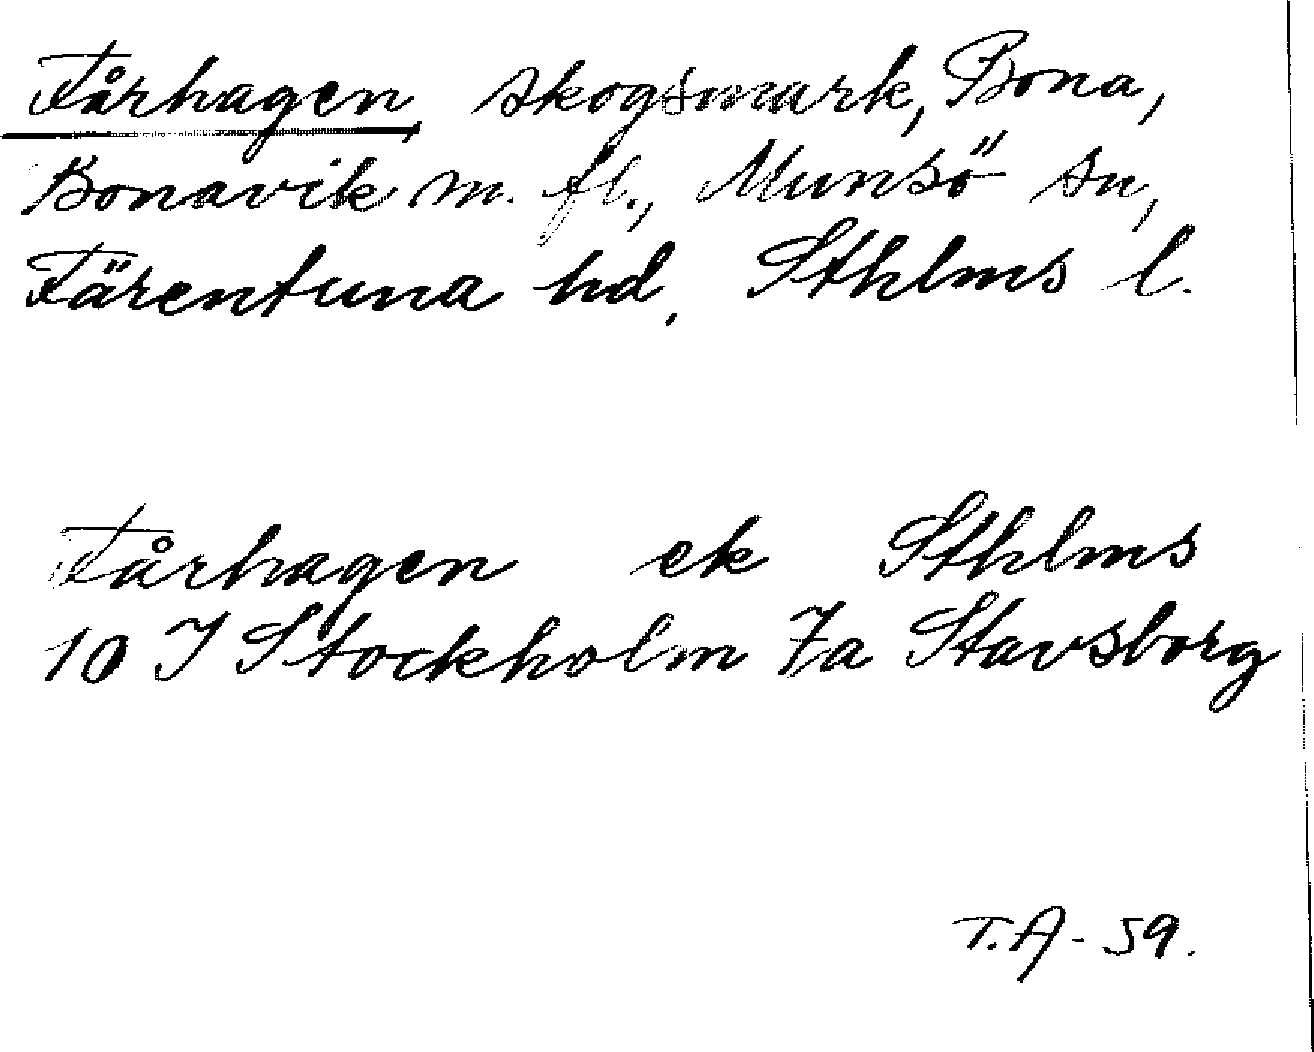 Fårhagen, skogsmark, Bona,
Bonavik m. fl., Munsö sn,
Färentuna hd, Sthlms l.
Fårhagen ek Sthlms
10 I Stockholm 7a Stavsborg
T.A - 59.